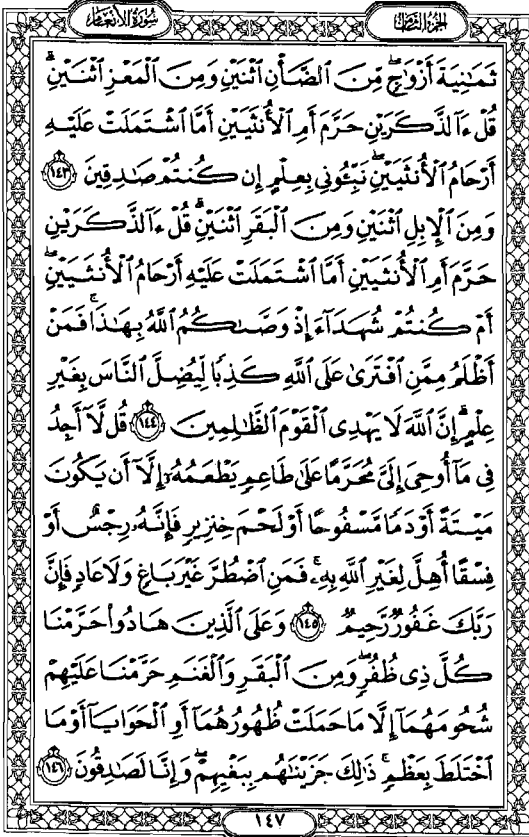 الجزء الثامن
سورة الأنعام
ثَمَٰنِيَةَ أَزْوَٰجٍ ۖ مِّنَ ٱلضَّأْنِ ٱثْنَيْنِ وَمِنَ ٱلْمَعْزِ ٱثْنَيْنِ ۗ
قُلْ ءَآلذَّكَرَيْنِ حَرَّمَ أَمِ ٱلْأُنثَيَيْنِ أَمَّا ٱشْتَمَلَتْ عَلَيْهِ
أَرْحَامُ ٱلْأُنثَيَيْنِ ۖ نَبِّـُٔونِى بِعِلْمٍ إِن كُنتُمْ صَٰدِقِينَ ١٤٣
وَمِنَ ٱلْإِبِلِ ٱثْنَيْنِ وَمِنَ ٱلْبَقَرِ ٱثْنَيْنِ ۗ قُلْ ءَآلذَّكَرَيْنِ
حَرَّمَ أَمِ ٱلْأُنثَيَيْنِ أَمَّا ٱشْتَمَلَتْ عَلَيْهِ أَرْحَامُ ٱلْأُنثَيَيْنِ ۖ
أَمْ كُنتُمْ شُهَدَآءَ إِذْ وَصَّىٰكُمُ ٱللَّهُ بِهَٰذَا ۚ فَمَنْ
أَظْلَمُ مِمَّنِ ٱفْتَرَىٰ عَلَى ٱللَّهِ كَذِبًا لِّيُضِلَّ ٱلنَّاسَ بِغَيْرِ
عِلْمٍ ۗ إِنَّ ٱللَّهَ لَا يَهْدِى ٱلْقَوْمَ ٱلظَّٰلِمِينَ ١٤٤ قُل لَّآ أَجِدُ
فِى مَآ أُوحِىَ إِلَىَّ مُحَرَّمًا عَلَىٰ طَاعِمٍ يَطْعَمُهُۥٓ إِلَّآ أَن يَكُونَ
مَيْتَةً أَوْ دَمًا مَّسْفُوحًا أَوْ لَحْمَ خِنزِيرٍ فَإِنَّهُۥ رِجْسٌ أَوْ
فِسْقًا أُهِلَّ لِغَيْرِ ٱللَّهِ بِهِۦ ۚ فَمَنِ ٱضْطُرَّ غَيْرَ بَاغٍ وَلَا عَادٍ فَإِنَّ
رَبَّكَ غَفُورٌ رَّحِيمٌ ١٤٥ وَعَلَى ٱلَّذِينَ هَادُوا۟ حَرَّمْنَا
كُلَّ ذِى ظُفُرٍ ۖ وَمِنَ ٱلْبَقَرِ وَٱلْغَنَمِ حَرَّمْنَا عَلَيْهِمْ
شُحُومَهُمَآ إِلَّا مَا حَمَلَتْ ظُهُورُهُمَآ أَوِ ٱلْحَوَايَآ أَوْ مَا
ٱخْتَلَطَ بِعَظْمٍ ۚ ذَٰلِكَ جَزَيْنَٰهُم بِبَغْيِهِمْ ۖ وَإِنَّا لَصَٰدِقُونَ ١٤٦
١٤٧